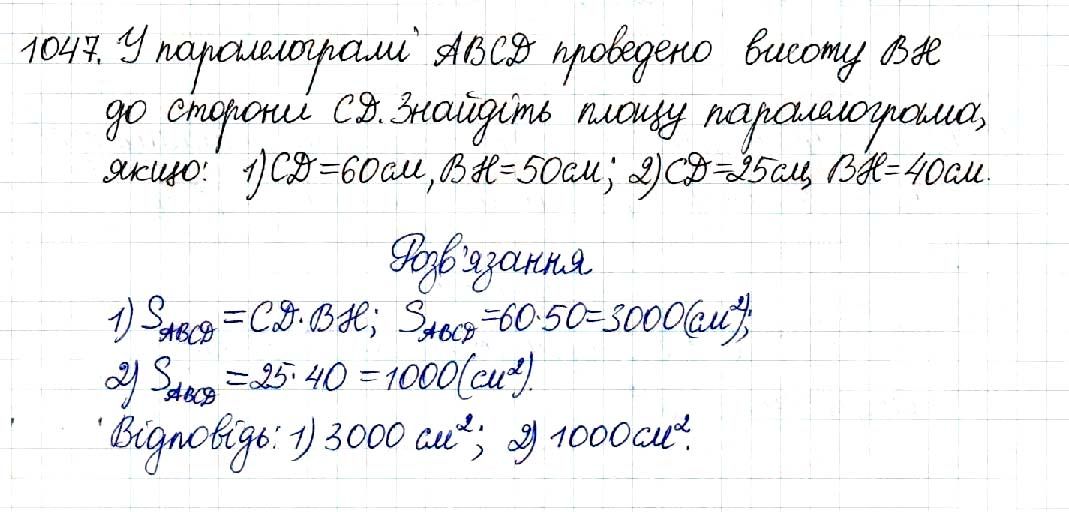 1047. У паралелограмі ABCD проведено висоту BH
до сторони CD. Знайдіть площу паралелограма,
якщо: 1) CD=60см, BH=50см; 2) CD=25см, BH=40см.
Розв'язання
1) S_ABCD = CD·BH; S_ABCD = 60·50=3000(см²);
2) S_ABCD = 25·40 = 1000(см²).
Відповідь: 1) 3000 см²; 2) 1000см².